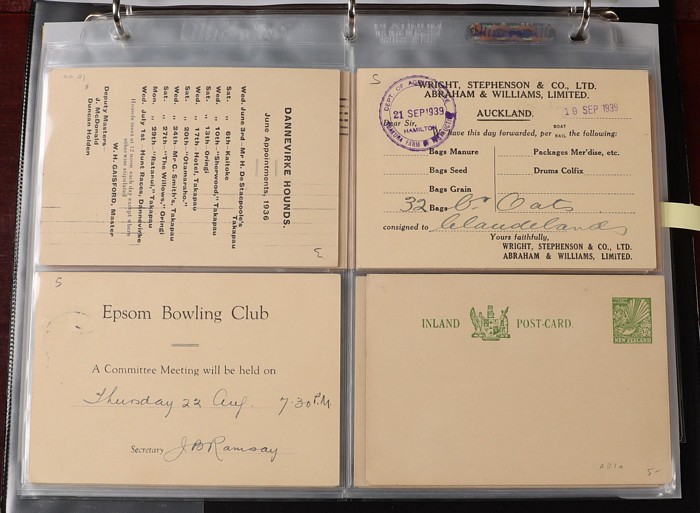 DANNEVIRKE HOUNDS.
June Appointments, 1936
Wed. June 3rd - Mr H. DeStacpoole's
Takapau
Sat. " 6th - Kaitoke
Wed. " 10th - "Sherwood," Takapau
Sat. " 13th - Oringi
Wed. " 17th - Hotel, Takapau
Sat. " 20th - "Otamaraho,"
Wed. " 24th - Mr G. Smith's, Takapau
Sat. " 27th - "The Willows," Oringi
Mon. " 29th - "Ratanui," Takapau
Wed. July 1st - Hunt Races, Dannevirke
Hounds meet at 12 noon each day except where
otherwise stipulated
W. H. GAISFORD, Master
Deputy Masters
J. McDonald
Duncan Holden
5
WRIGHT, STEPHENSON & CO., LTD.
ABRAHAM & WILLIAMS, LIMITED.
AUCKLAND.
18 SEP 1939
DEPT OF AGRICULTURE
21 SEP 1939
HAMILTON
Dear Sir,
We have this day forwarded, per BOAT RAIL the following:
Bags Manure Packages Mer'dise, etc.
Bags Seed Drums Colfix
Bags Grain
32 Bags Oats
consigned to Claudelands
Yours faithfully,
WRIGHT, STEPHENSON & CO., LTD.
ABRAHAM & WILLIAMS, LIMITED.
5
Epsom Bowling Club
A Committee Meeting will be held on
Thursday 22 Aug. 7.30 P.M.
Secretary J B Ramsay
INLAND POST-CARD.
NEW ZEALAND
5-